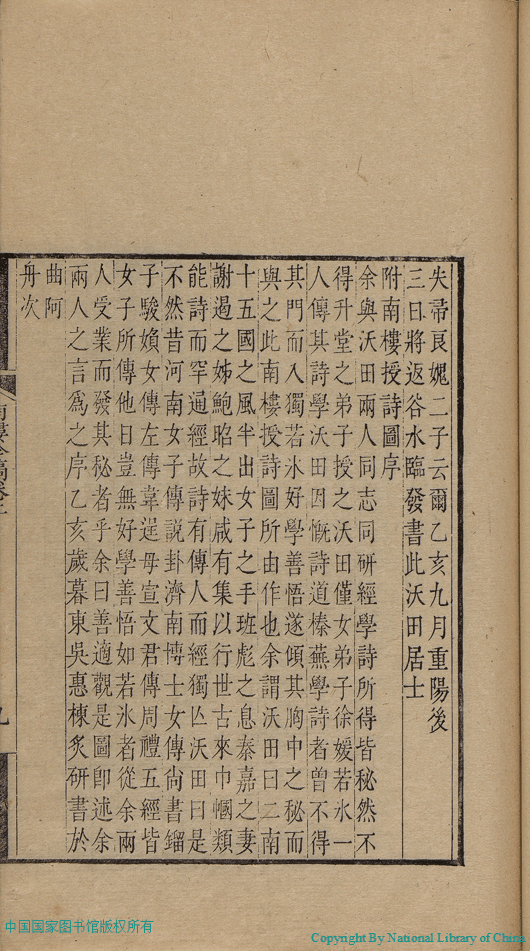 夫帝良媿二子云爾乙亥九月重陽後
三日將返谷水臨發書此沃田居士
附南樓授詩圖序
余與沃田兩人同志同研經學詩所得皆秘然不
得升堂之弟子授之沃田僅女弟子徐媛若冰一
人傳其詩學沃田因慨詩道榛蕪學詩者曾不得
其門而入獨若氷好學善悟遂傾其胸中之秘而
與之此南樓授詩圖所由作也余謂沃田曰二南
十五國之風半出女子之手班彪之息秦嘉之妻
謝遏之姊鮑昭之妹咸有集以行世古來巾幗類
能詩而罕通經故詩有傳人而經獨亾沃田曰是
不然昔河南女子傳說卦濟南博士女傳尚書鎦
子駿嬪女傳左傳韋逞母宣文君傳周禮五經皆
女子所傳他日豈無好學善悟如若氷者從余兩
人受業而發其秘者乎余曰善適觀是圖卽述余
兩人之言爲之序乙亥歲暮東吳惠棟炙研書於
曲阿
舟次
南樓
中国国家图书馆版权所有
Copyright By National Library of China